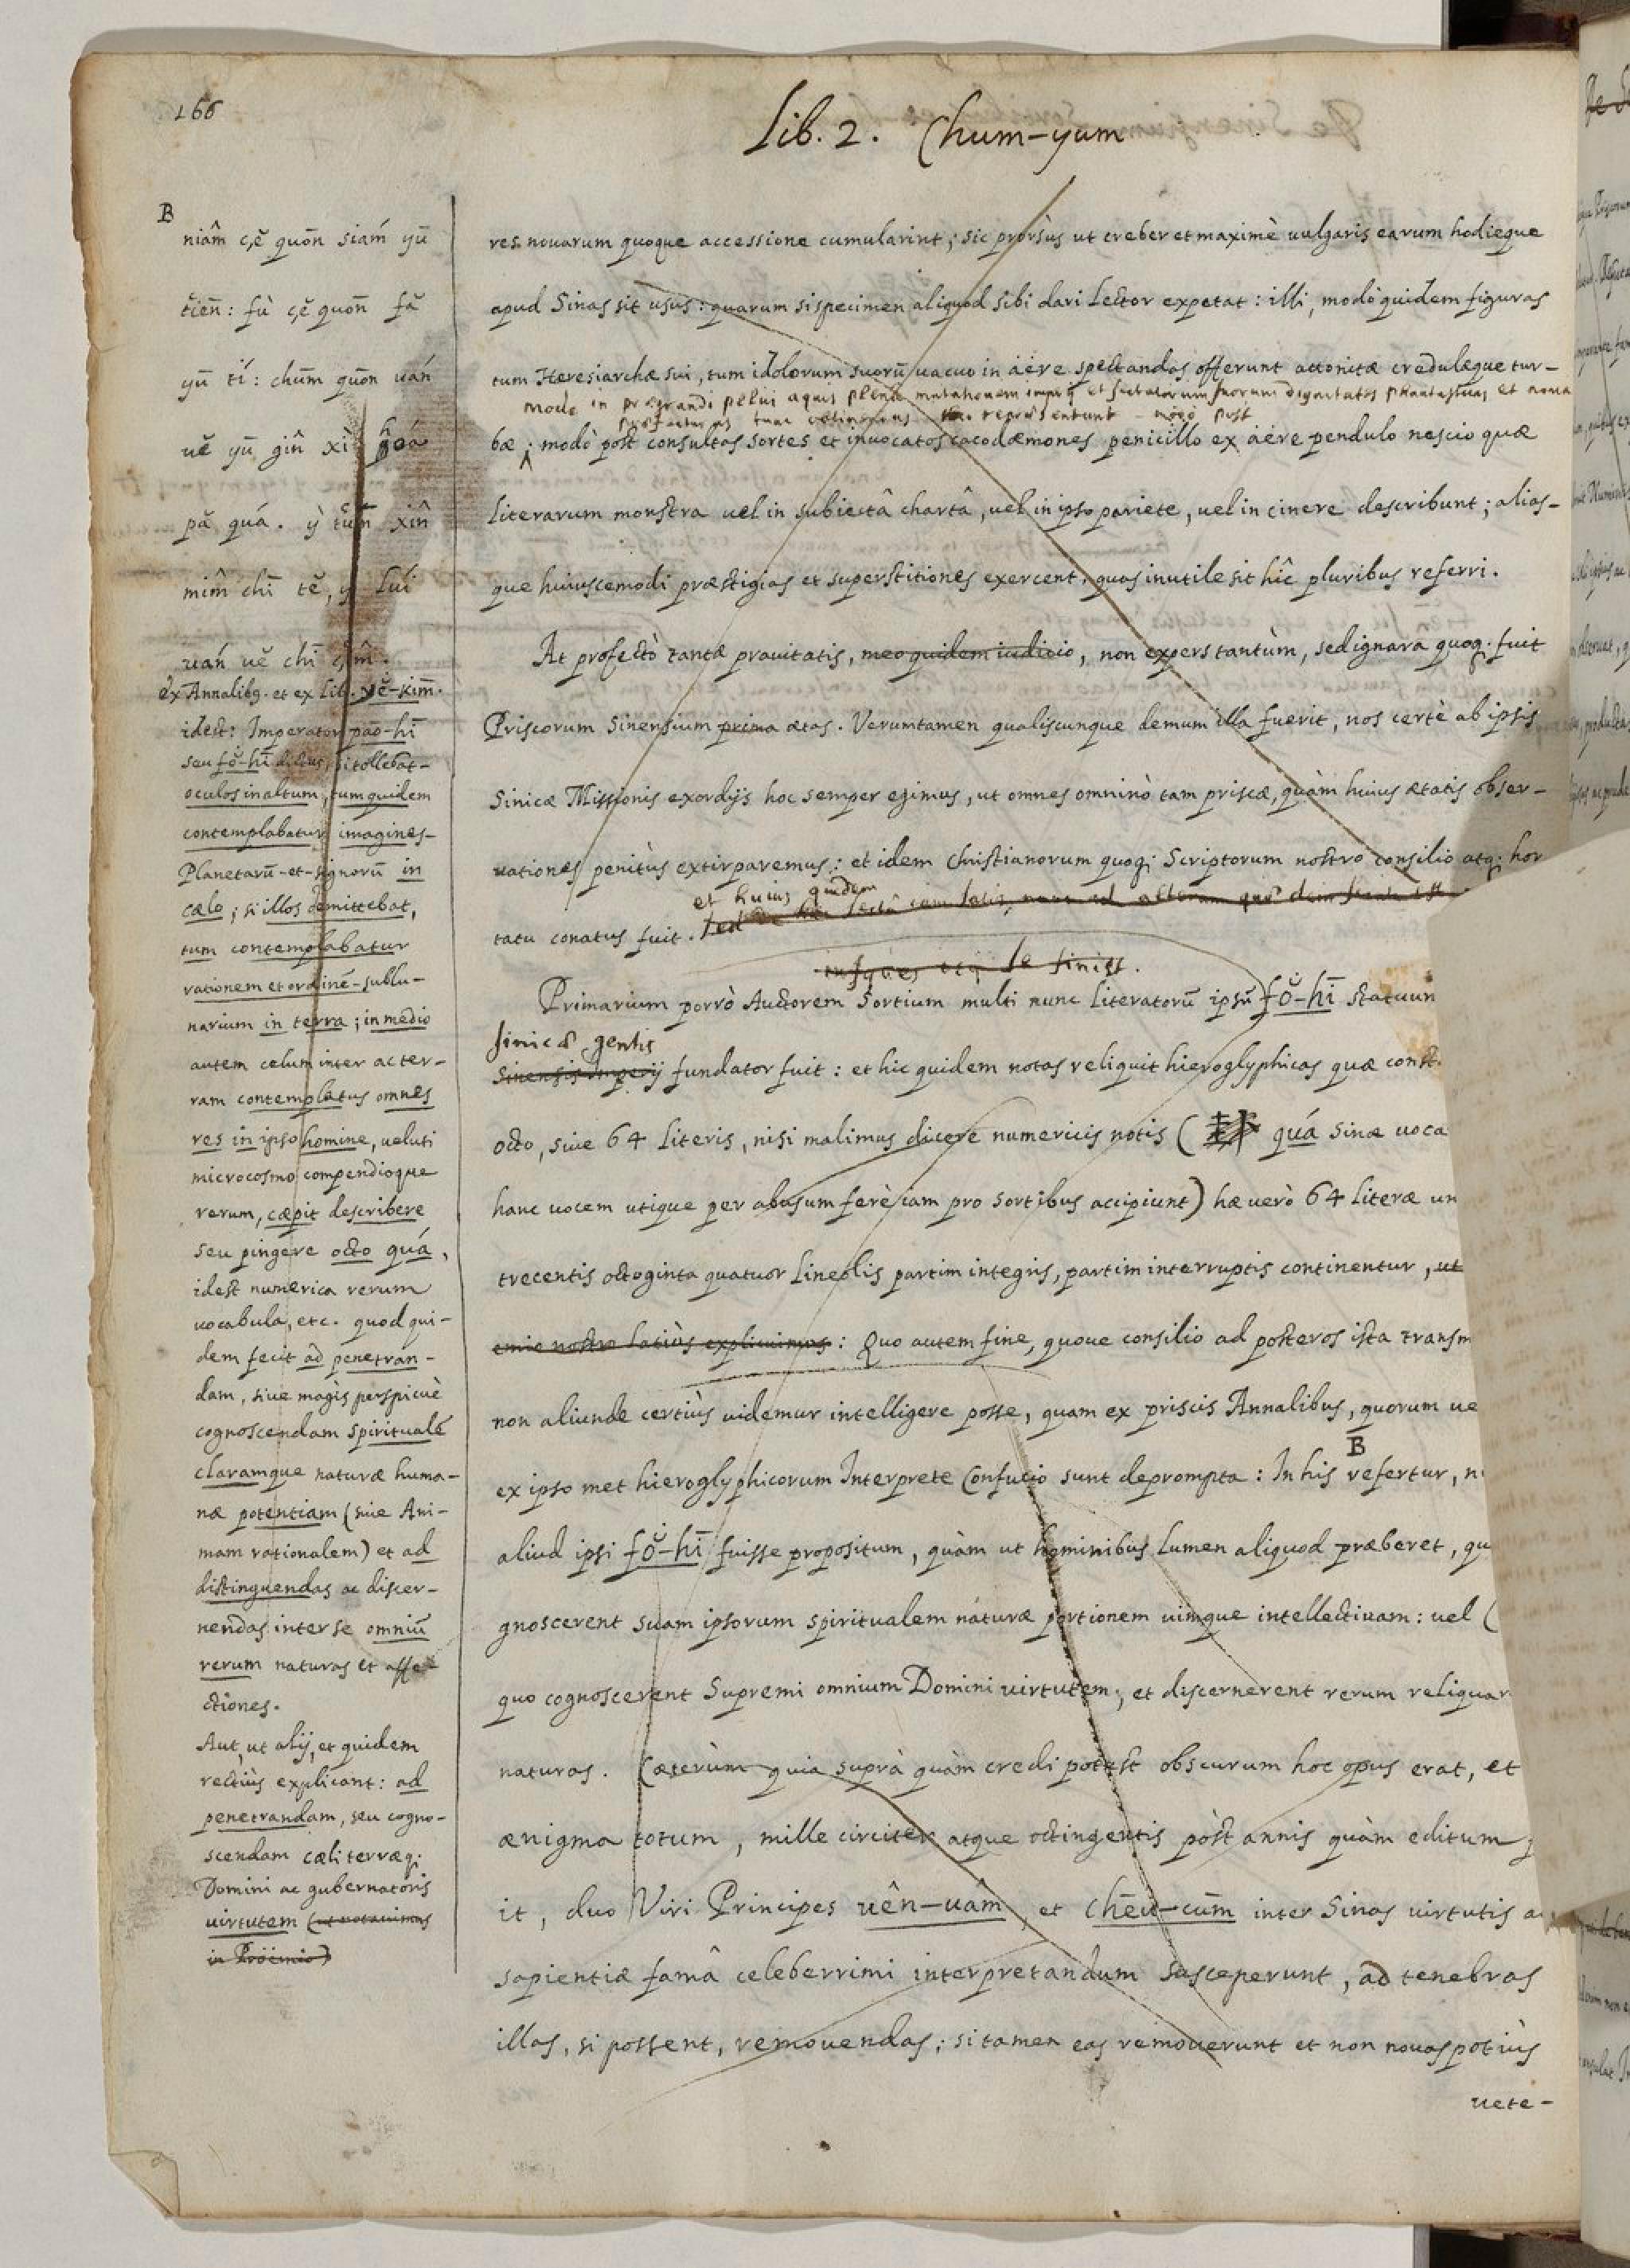 166
Lib. 2. Chum-yum
B
niâm çĕ quōn siám yū
tiēn: fù çĕ quōn fă
yū tí: chūm quōn uán
uĕ yū gîn xì
pă quá. ỳ tūm xîn
mîm chī tĕ, ỳ lúi
uán uĕ chī çîm.
ex Annalibq. et ex lit. yĕ-kīm.
idest: Imperator pāo-hī
seu fŏ-hī dictus, si tollebat
oculos in altum, tum quidem
contemplabatur imagines
Planetarū-et-signorū in
cælo; si illos demittebat,
tum contemplabatur
rationem et ordinē-sublu-
narium in terra; in medio
autem celum inter ac ter-
ram contemplatus omnes
res in ipso homine, ueluti
microcosmo compendioque
rerum, cæpit describere
seu pingere octo quá,
idest numerica rerum
uocabula, etc. quod qui-
dem fecit ad penetran-
dam, siue magìs perspicuè
cognoscendam spiritualē
claramque naturæ huma-
næ potentiam (siue Ani-
mam rationalem) et ad
distinguendas ac discer-
nendas inter se omniū
rerum naturas et affe-
ctiones.
Aut, ut alij, et quidem
rectiùs explicant: ad
penetrandam, seu cogno-
scendam cæli terræq;
Domini ac gubernatoris
uirtutem (ut notauimus
in Proëmio)
res nouarum quoque accessione cumularint; sic prorsùs ut creber et maximè uulgaris earum hodieque
apud Sinas sit usus: quarum si specimen aliquod sibi dari Lector expetat: illi, modò quidem figuras
tum Heresiarchæ sui, tum idolorum suorū uacuo in aëre spectandas offerunt attonitæ credulæque tur-
modo in prægrandi pelui aquis plena mutationem imperij et sectatorum suorum dignitates phantasticas et noua
repræsentant modò post
bæ; modò post consultas sortes et inuocatos cacodæmones penicillo ex aëre pendulo nescio quæ
literarum monstra uel in subiectâ chartâ, uel in ipso pariete, uel in cinere describunt; alias-
que huiuscemodi præstigias et superstitiones exercent, quas inutile sit hîc pluribus referri.
At profectò tantæ prauitatis, meo quidem iudicio, non expers tantùm, sed ignara quoq; fuit
Priscorum Sinensium prima ætas. Verumtamen qualiscunque demum illa fuerit, nos certè ab ipsis
Sinicæ Missionis exordijs hoc semper egimus, ut omnes omninò tam priscæ, quàm huius ætatis obser-
uationes penitùs extirparemus: et idem Christianorum quoq; Scriptorum nostro consilio atq; hor
et huius quidem
tatu conatus fuit. Sed de hac sectâ iam satis, nunc ad alteram
Primarium porrò Auctorem Sortium multi nunc Literatorū ipsū fŏ-hī statuun
sinicæ gentis
Sinensis Imperij fundator fuit: et hic quidem notas reliquit hieroglyphicas quæ const
octo, siue 64 literis, nisi malimus dicere numericis notis ( quá Sinæ uoca
hanc uocem utique per abusum ferè iam pro sortibus accipiunt) hæ uerò 64 literæ un
trecentis octoginta quatuor lineolis partim integris, partim interruptis continentur, ut
emio nostro latiùs explicuimus: Quo autem fine, quoue consilio ad posteros ista transm
non aliunde certiùs uidemur intelligere posse, quam ex priscis Annalibus, quorum ue
B
ex ipso met hieroglyphicorum Interprete Confucio sunt deprompta: In his refertur, n
aliud ipsi fŏ-hī fuisse propositum, quàm ut hominibus lumen aliquod præberet, qu
gnoscerent suam ipsorum spiritualem naturæ portionem uimque intellectiuam: uel (
quo cognoscerent Supremi omnium Domini uirtutem, et discernerent rerum reliquar
naturas. Cæterùm quia suprà quàm credi potest obscurum hoc opus erat, et
ænigma totum, mille circiter atque octingentis pòst annis quàm editum
it, duo Viri Principes uên-uâm, et chēu-cūm inter Sinas uirtutis ac
sapientiæ famâ celeberrimi interpretandum susceperunt, ad tenebras
illas, si possent, remouendas; si tamen eas remouerunt et non nouas potiùs
uete-